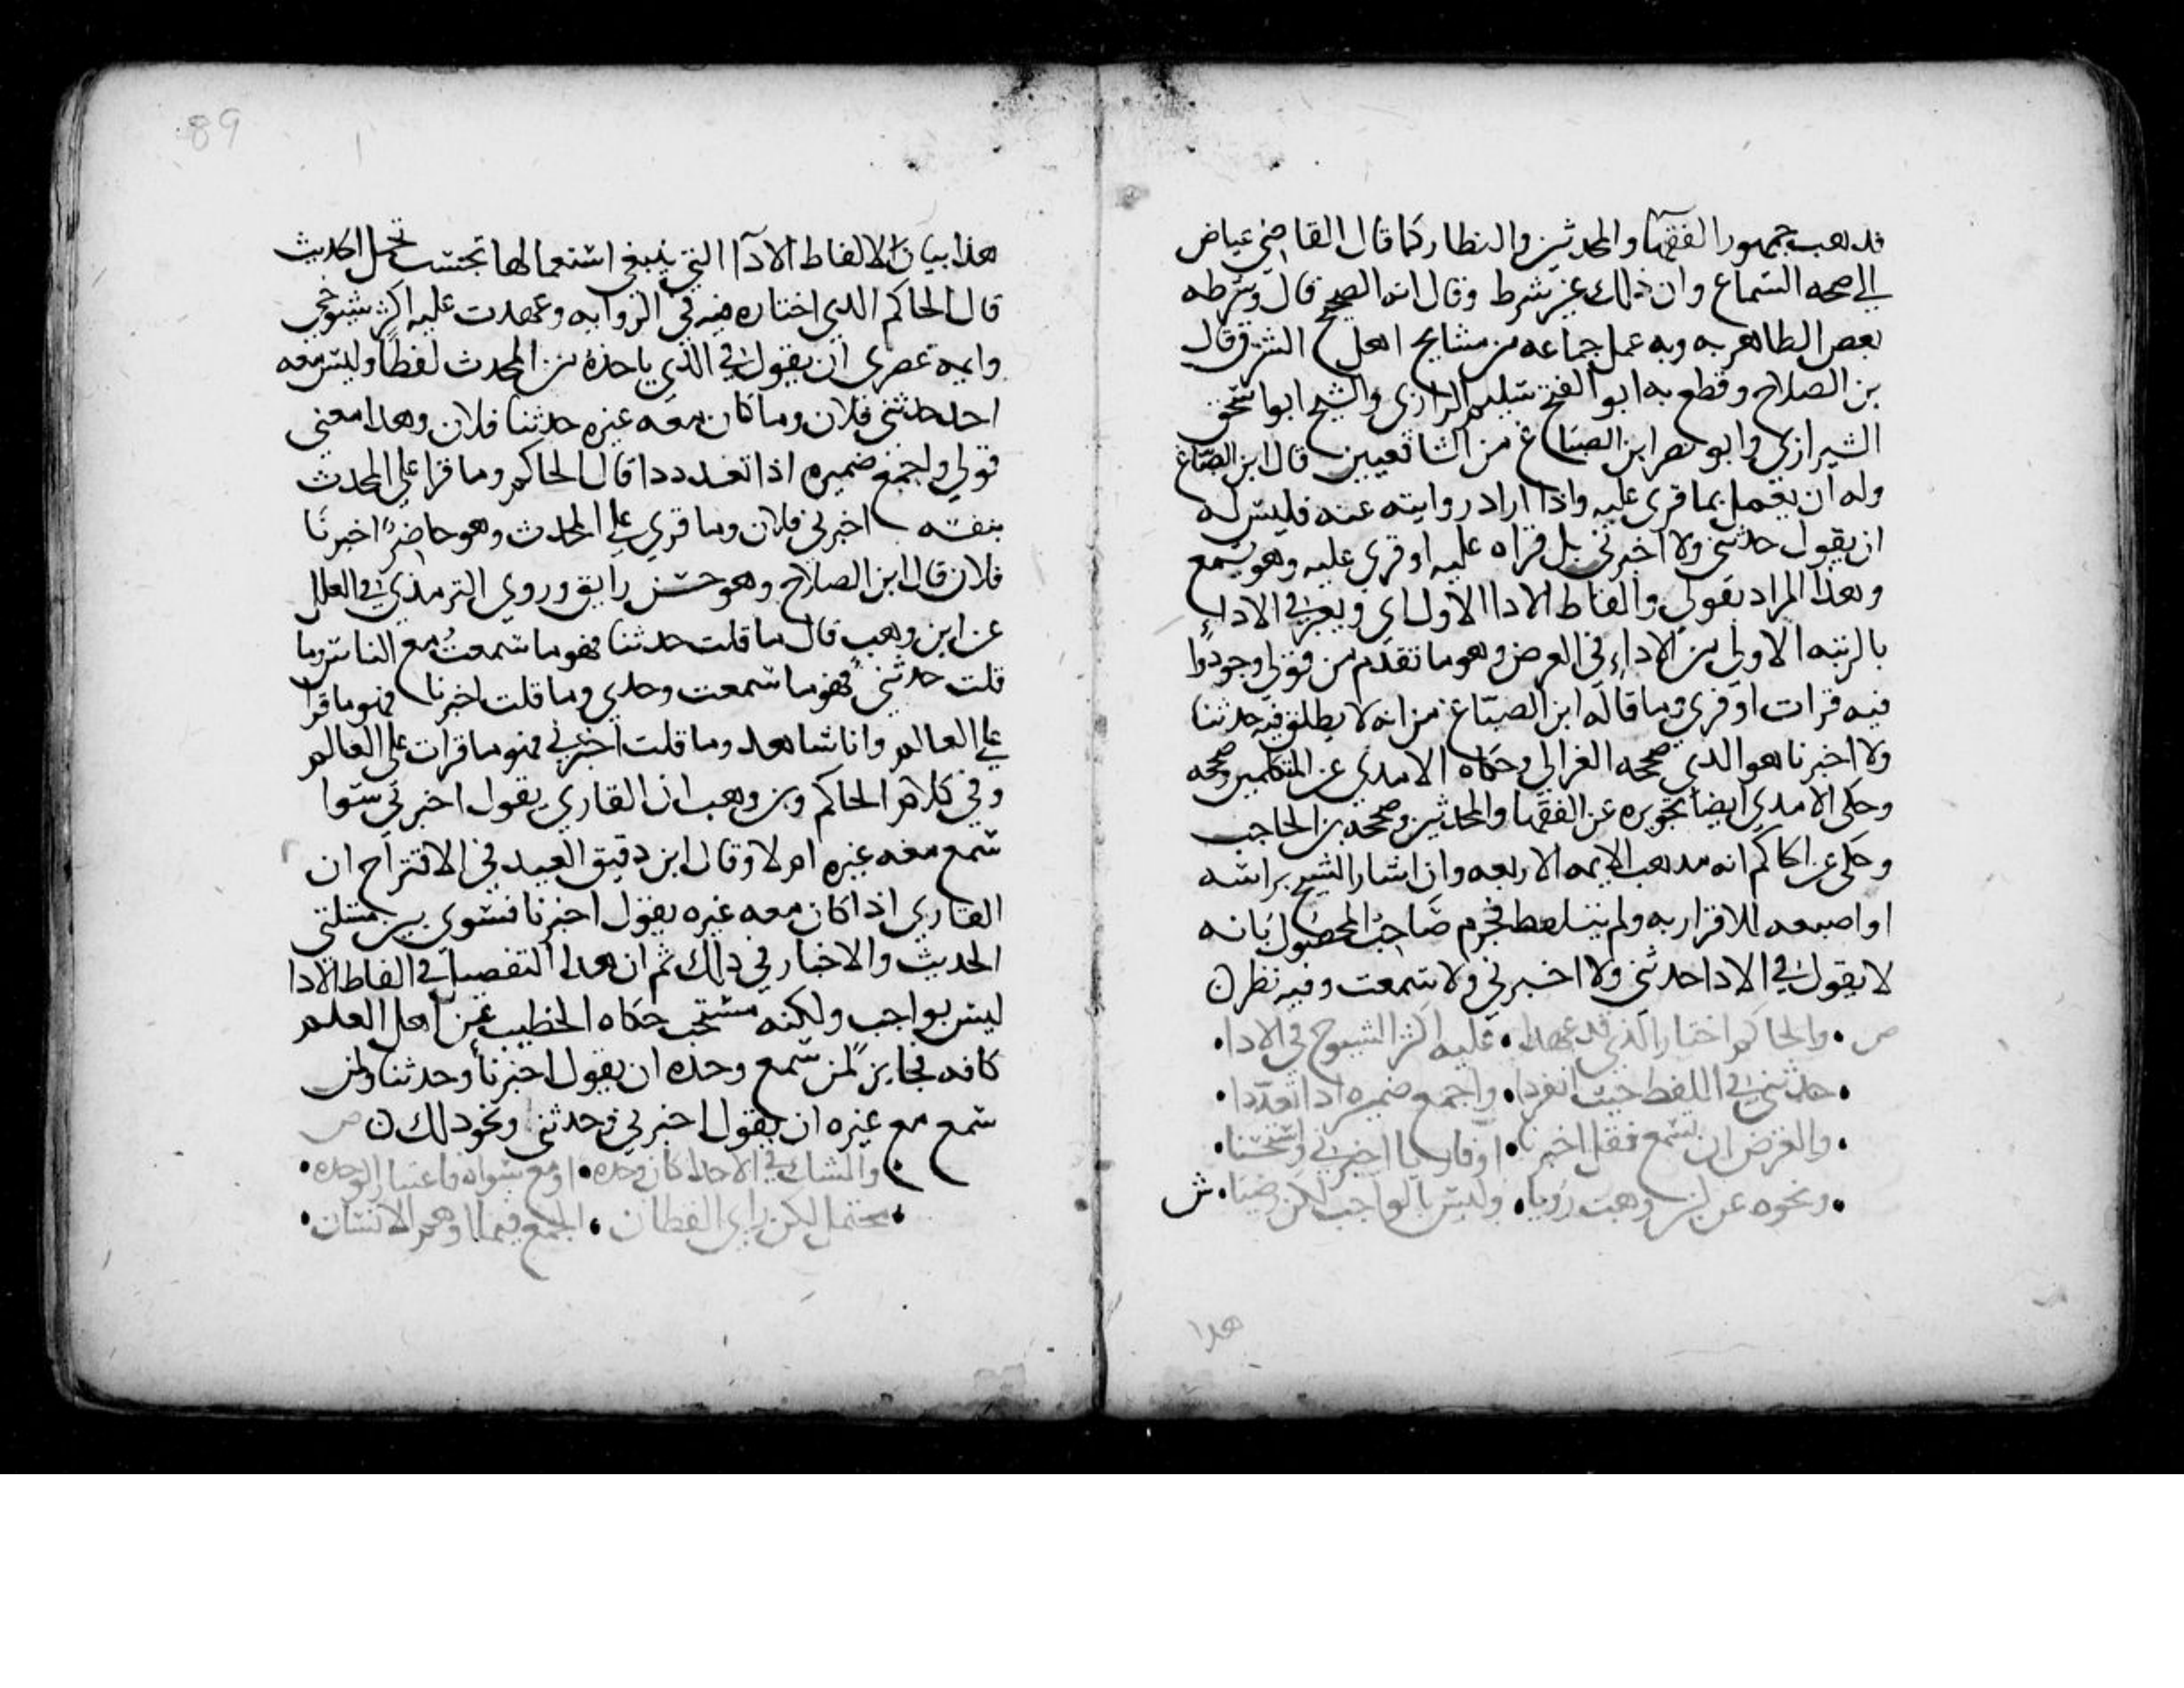 فذهب جمهور الفقهاء والمحدثين والنظار كما قال القاضي عياض
الي صحه السماع وان ذلك غير شرط وقال انه الصحيح قال وشرطه
بعض الظاهريه وبه عمل جماعه من مشايخ اهل الشرق قال
بن الصلاح وقطع به ابو الفتح سليم الرازي والشيخ ابو اسحق
الشيرازي وابو نصر ابن الصباغ من الشافعيين قال ابن الصباغ
وله ان يعمل بما قري عليه واذا اراد روايته عنه فليس له
ان يقول حدثني ولا اخبرني بل قراه عليه او قري عليه وهو يسمع
وهذا المراد بقولي والفاظ الادا الاول اي ويعبر في الاداء
بالرتبه الاولي من الاداء في العرض وهو ما تقدم من قولي وجودوا
فيه قرات او قري وما قاله ابن الصباغ من انه لا يطلق فيه حدثنا
ولا اخبرنا هو الذي صححه الغزالي وحكاه الامدي عن المتكلمين وصححه
وحكي الامدي ايضا تجويزه عن الفقها والمحدثين وصححه بن الحاجب
وحكي عن الحاكم انه مذهب الايمه الاربعه وان اشار الشيخ براسه
او اصبعه للاقرار به ولم يتلفظ فجزم صاحب المحصول بانه
لا يقول في الادا حدثني ولا اخبرني ولا سمعت وفيه نظر ن
ص • والحاكم اختار الذي قد عهدا • عليه اكثر الشيوخ في الادا •
• حدثني في اللفظ حيث انفردا • واجمع ضميره اذا تعددا •
• والعرض ان تسمع فقل اخبرنا • او قاريا اخبرني واستحسنا •
• ونحوه عن ابن وهب رويا • وليس بالواجب لكن رضيا • ش
هذا
89
هذا بيان الالفاظ الادا التي ينبغي استعمالها بحسب تحمل الحديث
قال الحاكم الذي اختاره فيه في الروايه وعهدت عليه اكثر شيوخي
وايمه عصري ان يقول في الذي ياخذه من المحدث لفظا وليس معه
احد حدثني فلان وما كان معه غيره حدثنا فلان وهذا معني
قولي واجمع ضميره اذا تعددا قال الحاكم وما قرا علي المحدث
بنفسه اخبرني فلان وما قري علي المحدث وهو حاضر اخبرنا
فلان قال ابن الصلاح وهو حسن رايق وروي الترمذي في العلل
عن ابن وهب قال ما قلت حدثنا فهو ما سمعت مع الناس وما
قلت حدثني فهو ما سمعت وحدي وما قلت اخبرنا فهو ما قرا
علي العالم وانا شاهد وما قلت اخبرني فهو ما قرات علي العالم
وفي كلام الحاكم وبن وهب ان القاري يقول اخبرني سوا
سمع معه غيره ام لا وقال ابن دقيق العيد في الاقتراح ان
القاري اذا كان معه غيره يقول اخبرنا فسوي بين مسلتي
الحديث والاخبار في ذلك ثم ان هذا التفصيل في الفاظ الادا
ليس بواجب ولكنه مستحب حكاه الخطيب عن اهل العلم
كافه فجايز لمن سمع وحده ان يقول اخبرنا وحدثنا ولمن
سمع مع غيره ان يقول اخبرني وحدثني ونحو ذلك ن ص
والشك في الاخذ اكان وحده • او مع سواه فاعتبار الوحده •
• محتمل لكن راي القطان • الجمع فيما اوهم الانسان •